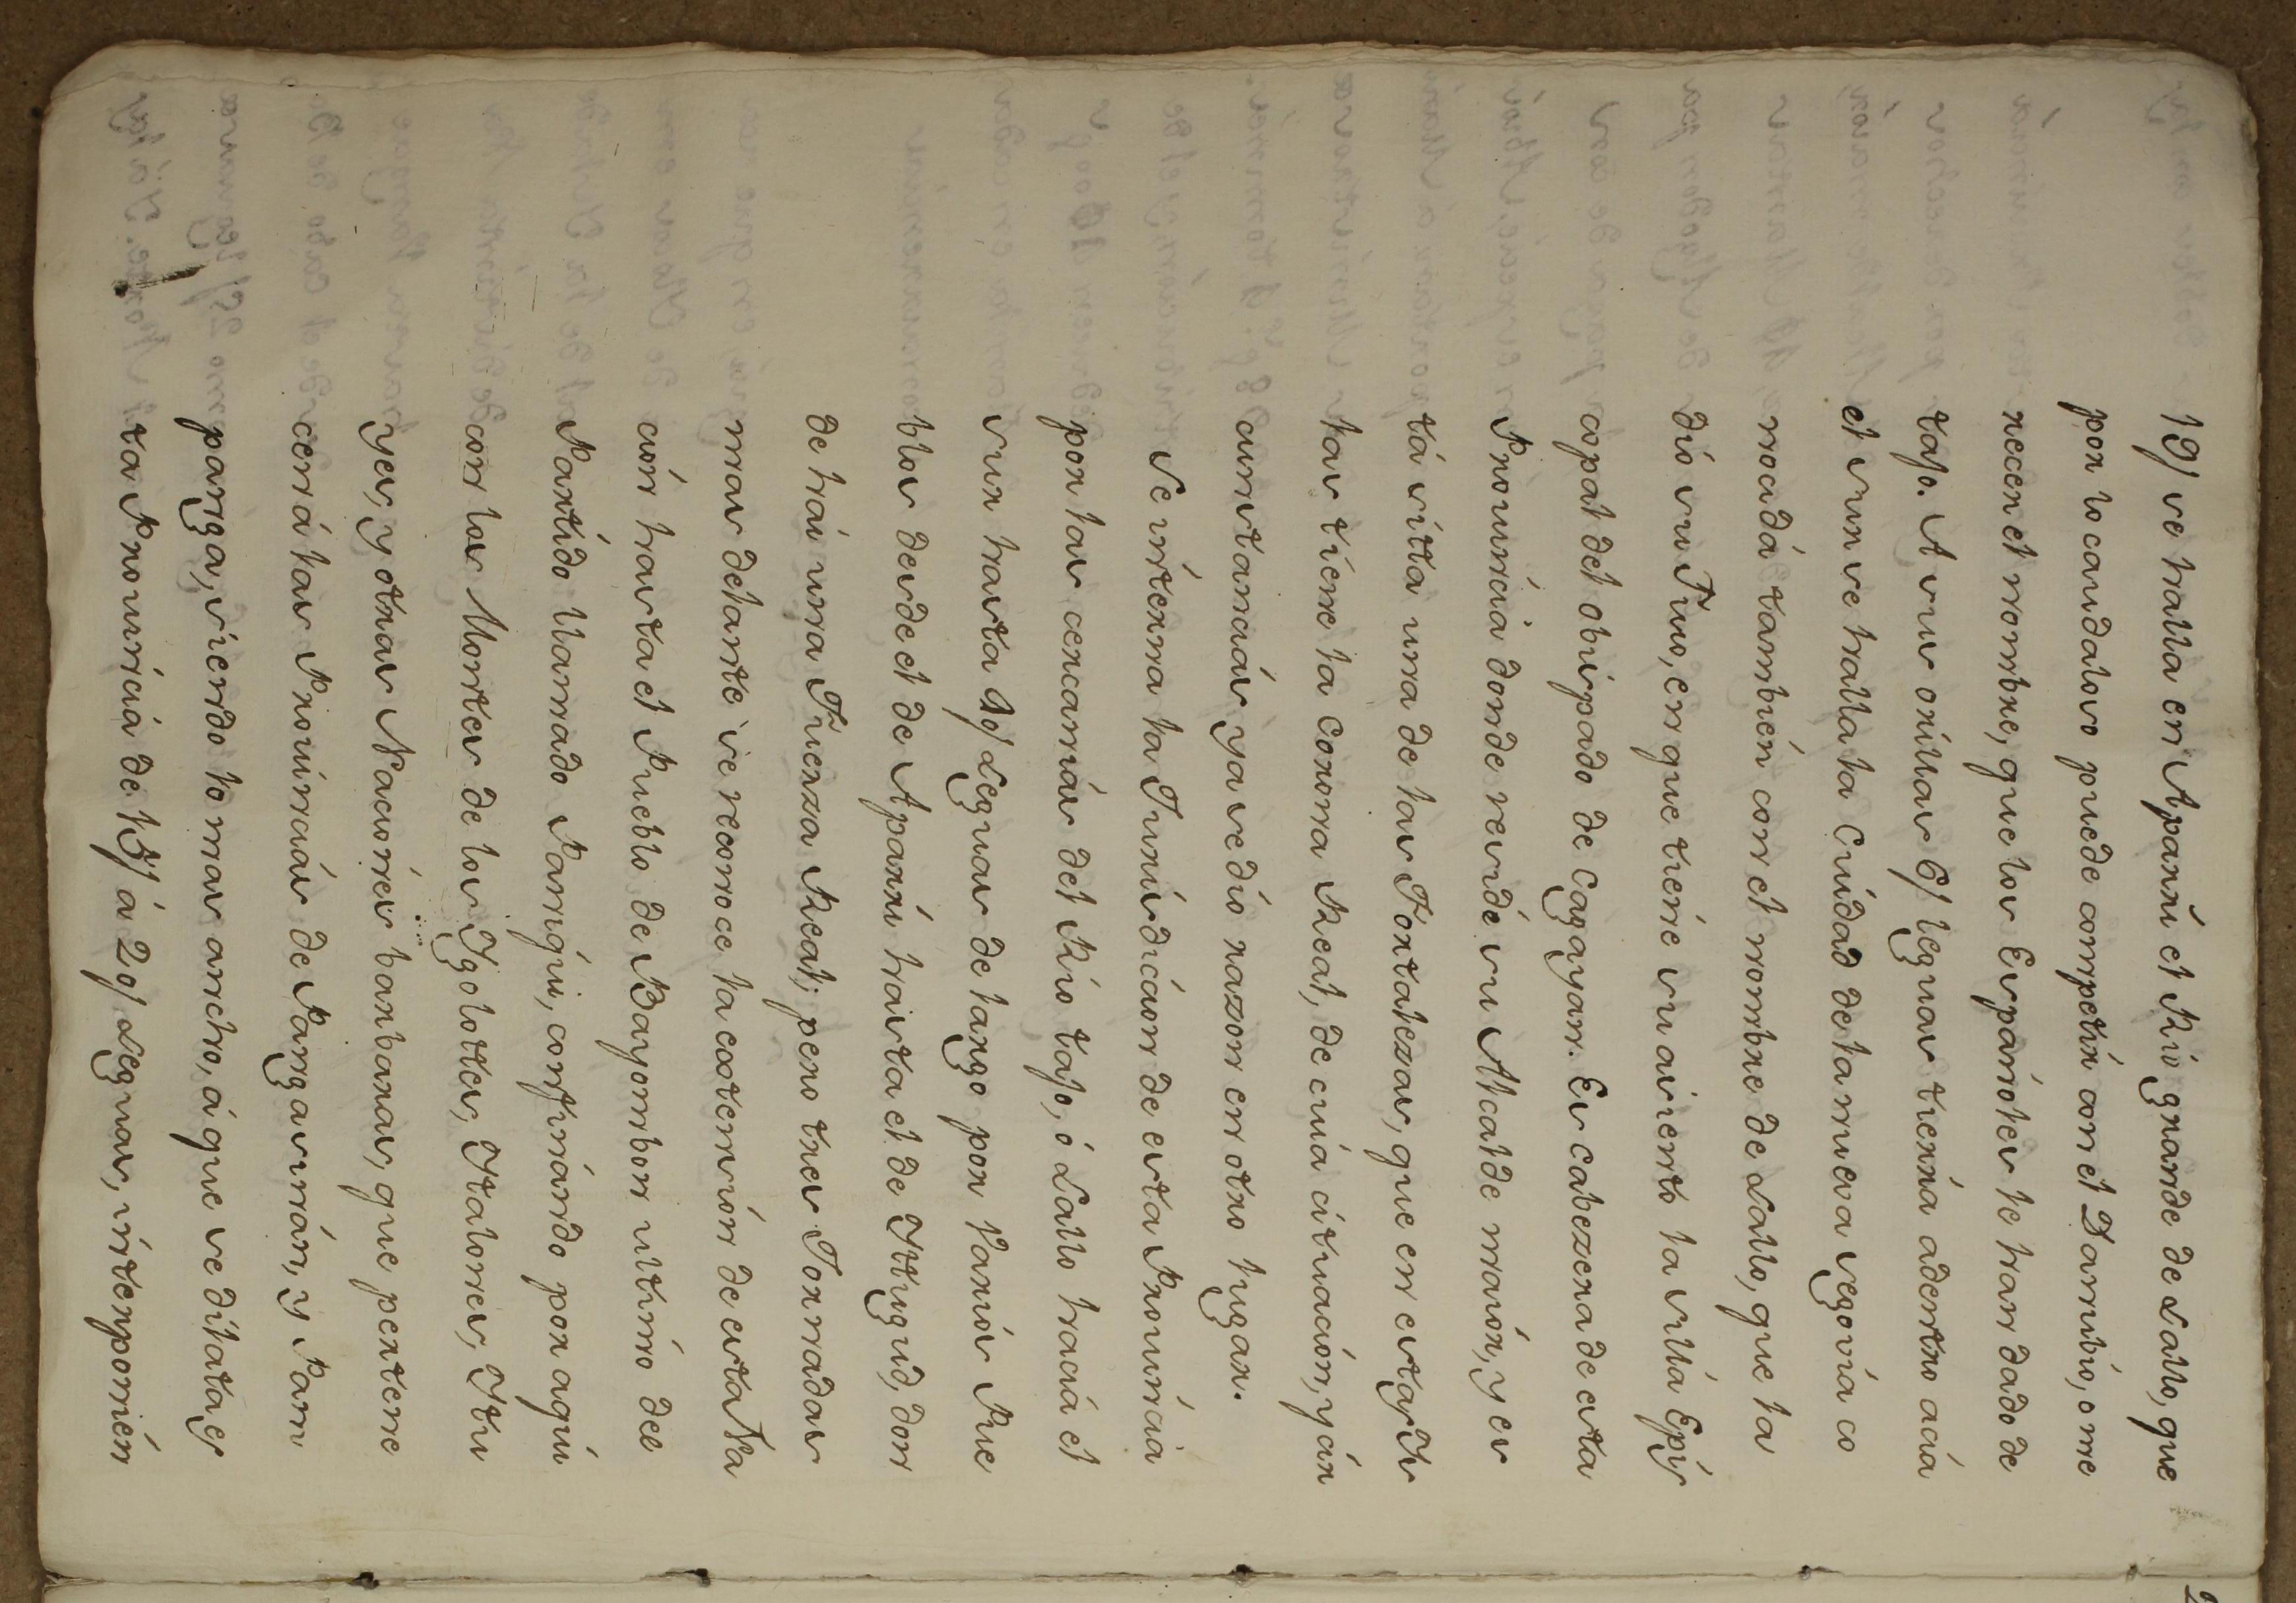 19/ se halla en Aparri el Rio grande de Lallo, que
por lo caudaloso puede competir con el Danubio, o me
recen el nombre, que los Españoles le han dado de
tajo. A sus orillas 6/ leguas tierra adentro acia
el sur se halla la Ciudad de la nueva segovia co
nocida tambien con el nombre de Lallo, que la
dio su Rio, en que tiene su asiento la silla Epis
copal del obispado de Cagayan. Es cabezera de esta
Provincia donde reside su Alcalde maior, y es
ta villa una de las Fortalezas, que en estas Is
las tiene la Corona Real, de cuia situacion, y cir
cunstancias ya se dio razon en otro lugar.
Se interna la Jurisdiccion de esta Provincia
por las cercanias del Rio tajo, ó Lallo hacia el
sur hasta 40/ Leguas de largo por varios Pue
blos desde el de Aparri hasta el de Itugud, don
de hai una Fuerza Real; pero tres Jornadas
mas delante se reconoce la extension de esta Na
cion hasta el Pueblo de Bayombon ultimo del
Partido llamado Paniqui, confinando por aqui
con los Montes de los Ygolotes, Ytalones, Ytu
yes, y otras Naciones barbaras, que pertene
cen á las Provincias de Pangasinan, y Pam
panga, siendo lo mas ancho, á que se dilata es
ta Provincia de 15/ á 20/ Leguas, interponien